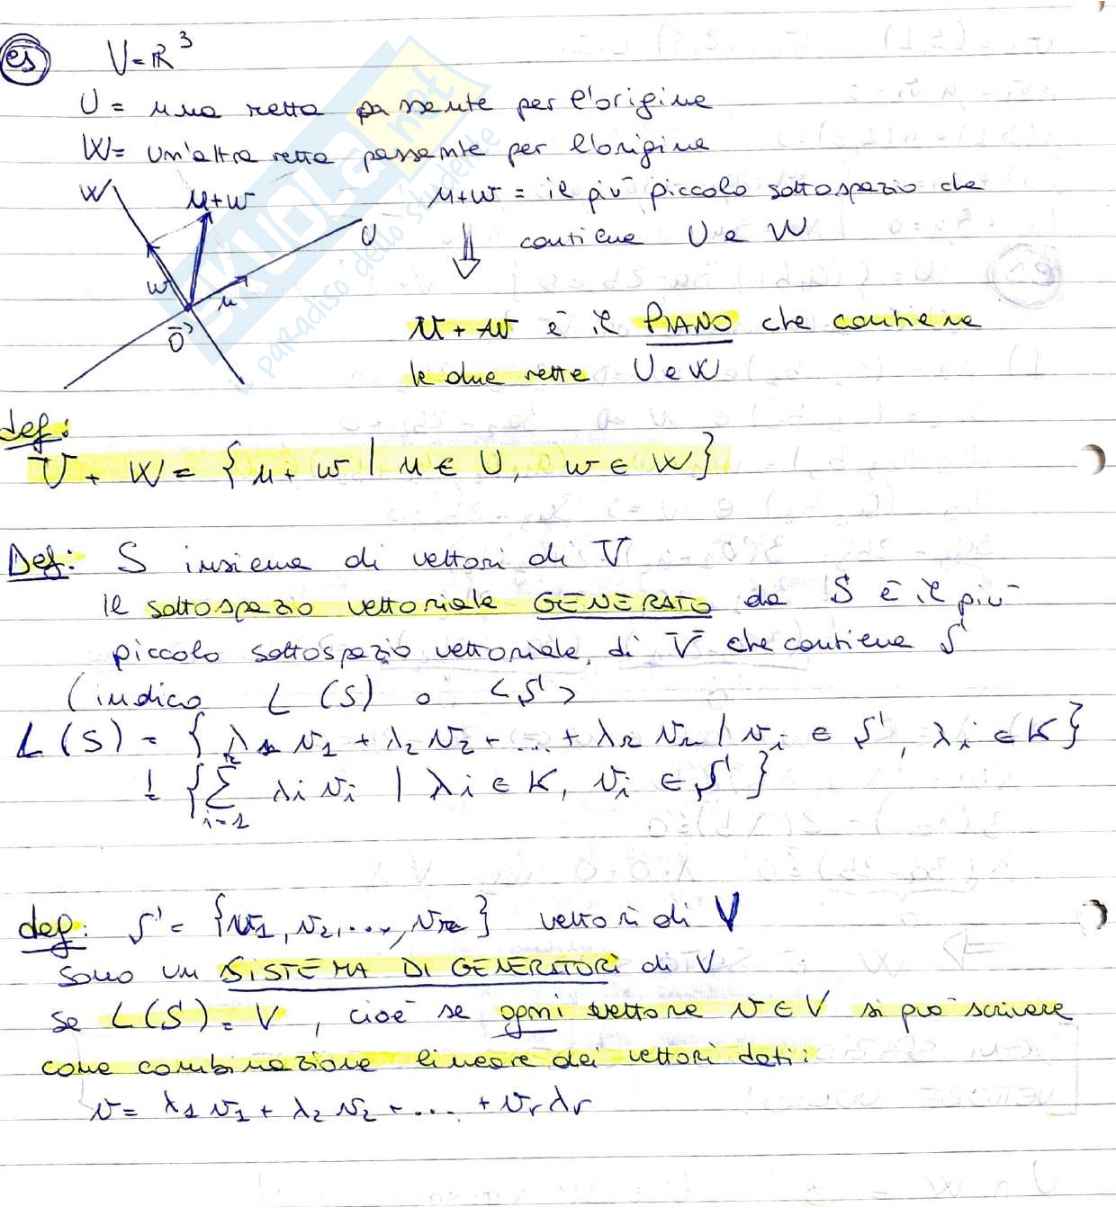 es V=ℝ³
U = una retta passante per l'origine
W = un'altra retta passante per l'origine
W u+w u+w = il più piccolo sottospazio che
U ⇓ contiene U e W
w u
0
u + w è il PIANO che contiene
le due rette U e W
def:
U + W = { u + w | u ∈ U, w ∈ W }
Def: S insieme di vettori di V
il sottospazio vettoriale GENERATO da S è il più
piccolo sottospazio vettoriale, di V che contiene S
(indico L (S) o <S>
L (S) = { λ1 v1 + λ2 v2 + ... + λr vr | vi ∈ S, λi ∈ K }
= { Σ i=1 λi vi | λi ∈ K, vi ∈ S }
def: S = {v1, v2, ..., vr } vettori di V
sono un SISTEMA DI GENERATORI di V
se L(S) = V, cioè se ogni vettore v ∈ V si può scrivere
come combinazione lineare dei vettori dati:
v = λ1 v1 + λ2 v2 + .... + vr λr
SKUOLA.net
il paradiso dello studente